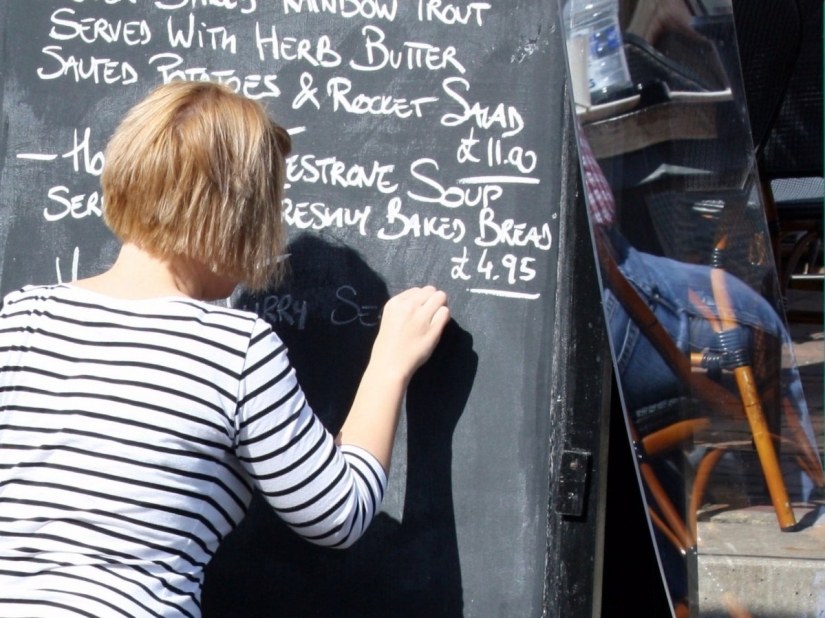 RAINBOW TROUT
SERVED WITH HERB BUTTER
SALTED POTATOES & ROCKET SALAD
£11.00
— HO ESTRONE SOUP
SER RESHLY BAKED BREAD
£4.95
URRY SE